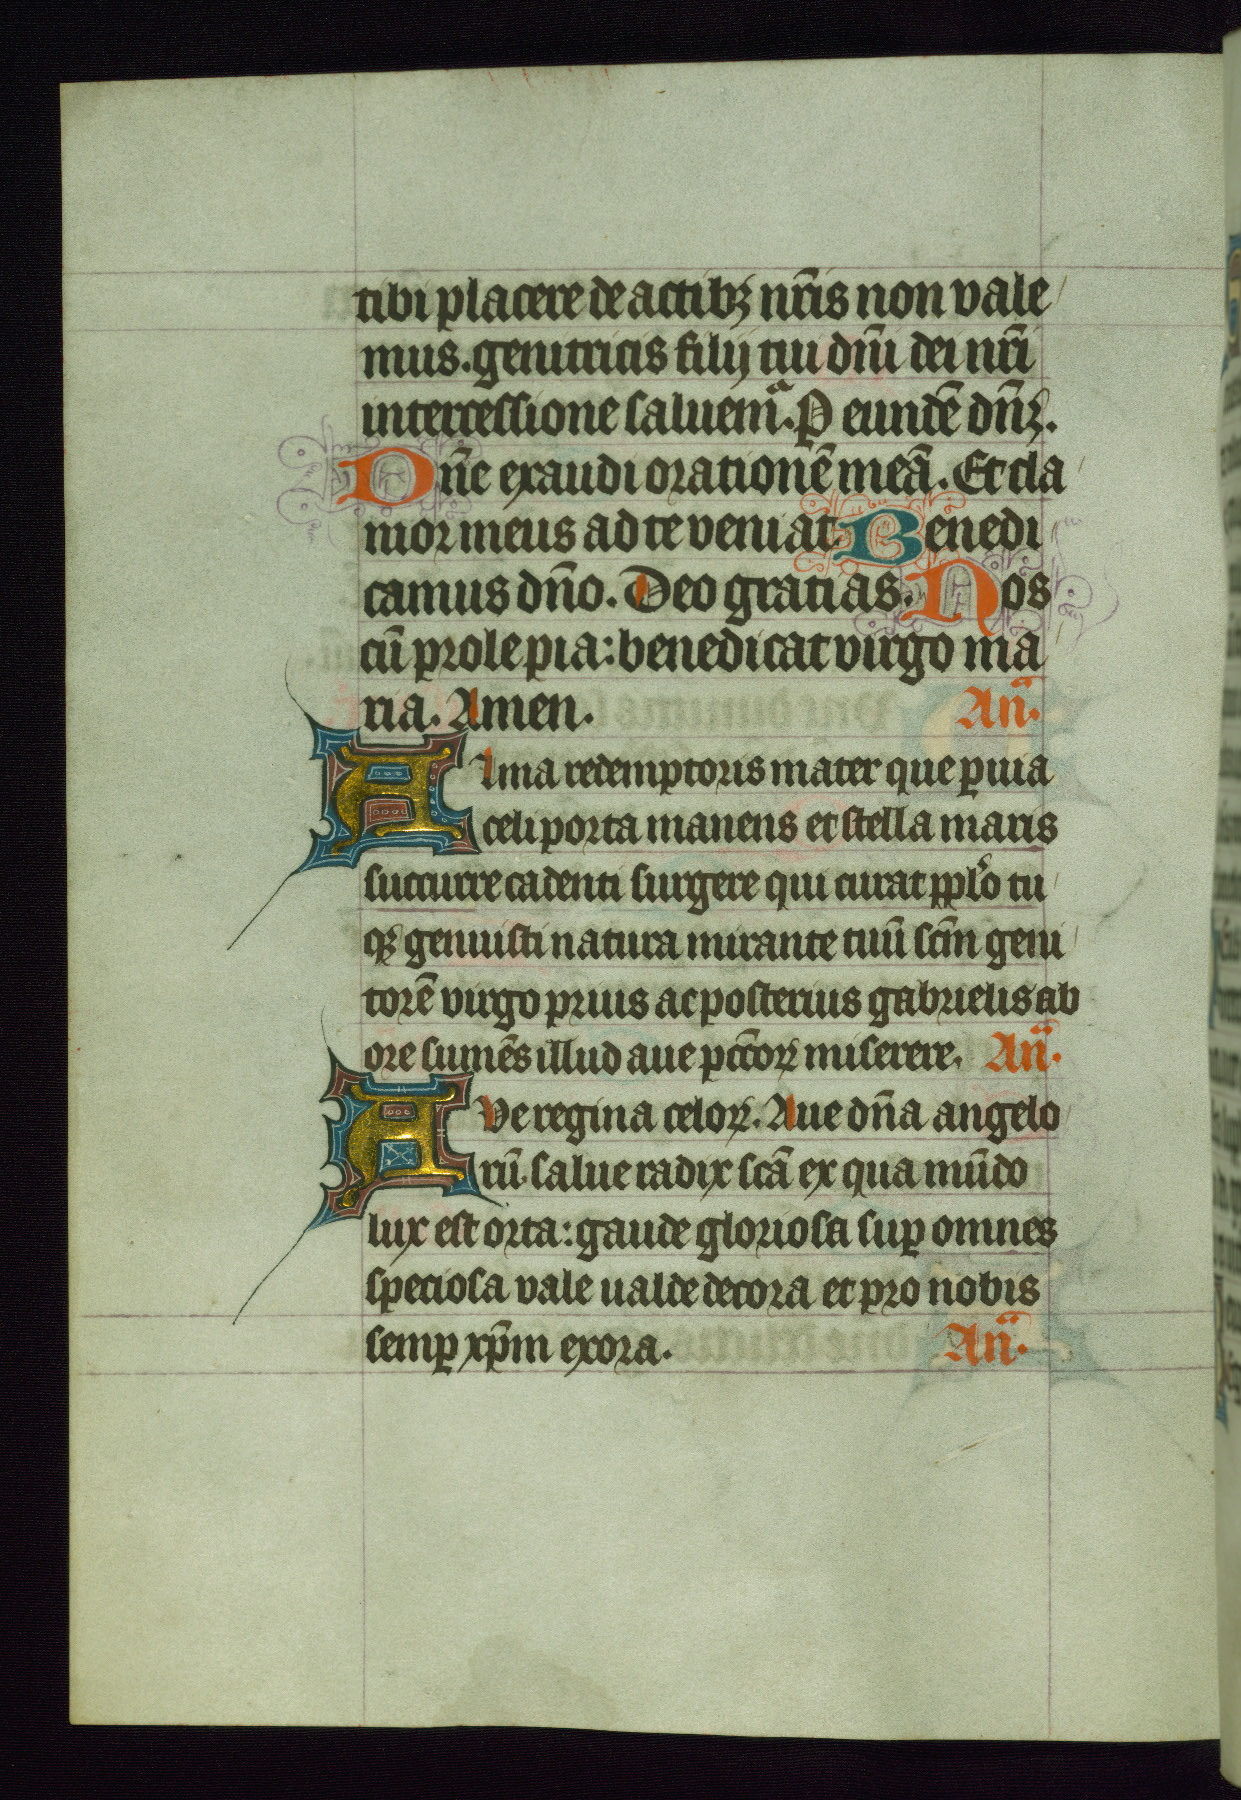 tibi placere de actibꝫ nr̄is non vale
mus. genitricis filij tui dn̄i dei nr̄i
intercessione saluemᷓ. P eundē dn̄ꝫ.
Dn̄e exaudi orationē meā. Et cla
mor meus ad te veniat. Benedi
camus dn̄o. Deo gratias. Nos
cū prole pia: benedicat virgo ma
ria. Amen. Anᷓ.
Alma redemptoris mater que ꝑuia
celi porta manens et stella maris
succurre cadenti surgere qui curat ppl̓o tu
qꝫ genuisti natura mirante tuū sc̄m geni
torē virgo prius ac posterius gabrielis ab
ore sumēs illud aue pcc̄oꝝ miserere. Anᷓ.
Aue regina celoꝝ. Aue dn̄a angelo
rū. salue radix sc̄a ex qua mūdo
lux est orta: gaude gloriosa suꝑ omnes
speciosa vale ualde decora et pro nobis
semꝑ xp̄m exora. Anᷓ.